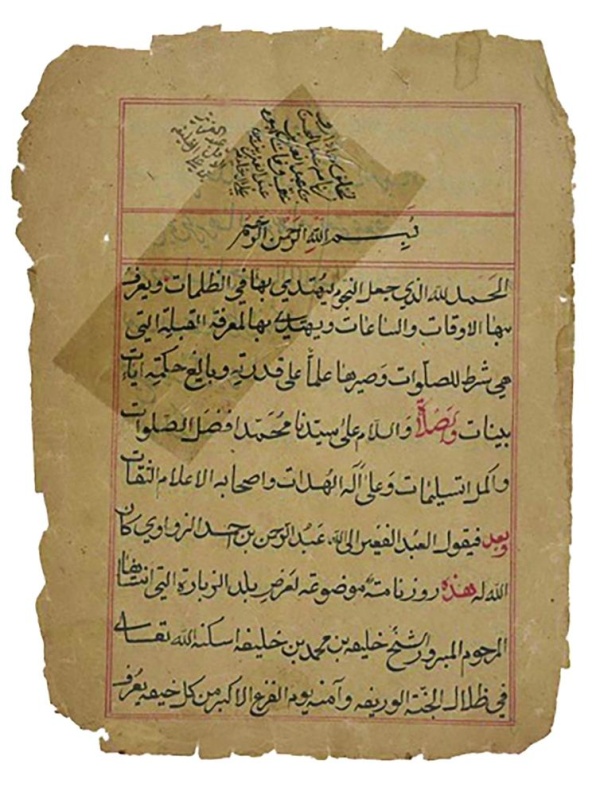 بِسمِ اللهِ الرَّحمنِ الرَّحيم
الحَمَد لله الذي جعل النجوم ليهتدي بها في الظلمات ويعرف
بها الاوقات والساعات ويهتدي بها لمعرفة القبلة التي
هي شرط للصلوات وصيرها علماً على قدرته وبالغ حكمته ايات
بينات والصلاة والسلام على سيدنا محمد افضل الصلوات
واكمل التسليمات وعلى آله الهدات واصحابه الاعلام الثقات
وبعد فيقول العبد الفقير الى الله عبد الرحمن بن احمد الزواوي كان
الله له هذه روزنامة موضوعه لعرض بلد الزبارة التي انشاها
المرحوم المبرور الشيخ خليفه بن محمد بن خليفه اسكنه الله تعالى
في ظلال الجنة الوريفه وآمنه يوم الفزع الاكبر من كل خيفه يعرف